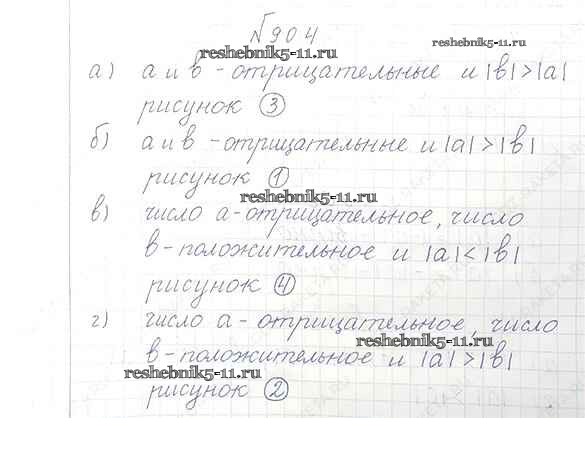 №904
reshebnik5-11.ru
reshebnik5-11.ru
а) a и b - отрицательные и |b|>|a|
рисунок ③
б) a и b - отрицательные и |a|>|b|
рисунок ①
reshebnik5-11.ru
в) число a - отрицательное, число
b - положительное и |a|<|b|
рисунок ④
г) число a - отрицательное, число
reshebnik5-11.ru
b - положительное и |a|>|b|
reshebnik5-11.ru
рисунок ②